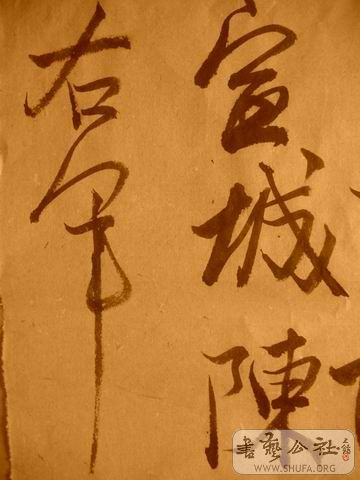 宣城陳
右軍
書藝公社
WWW.SHUFA.ORG